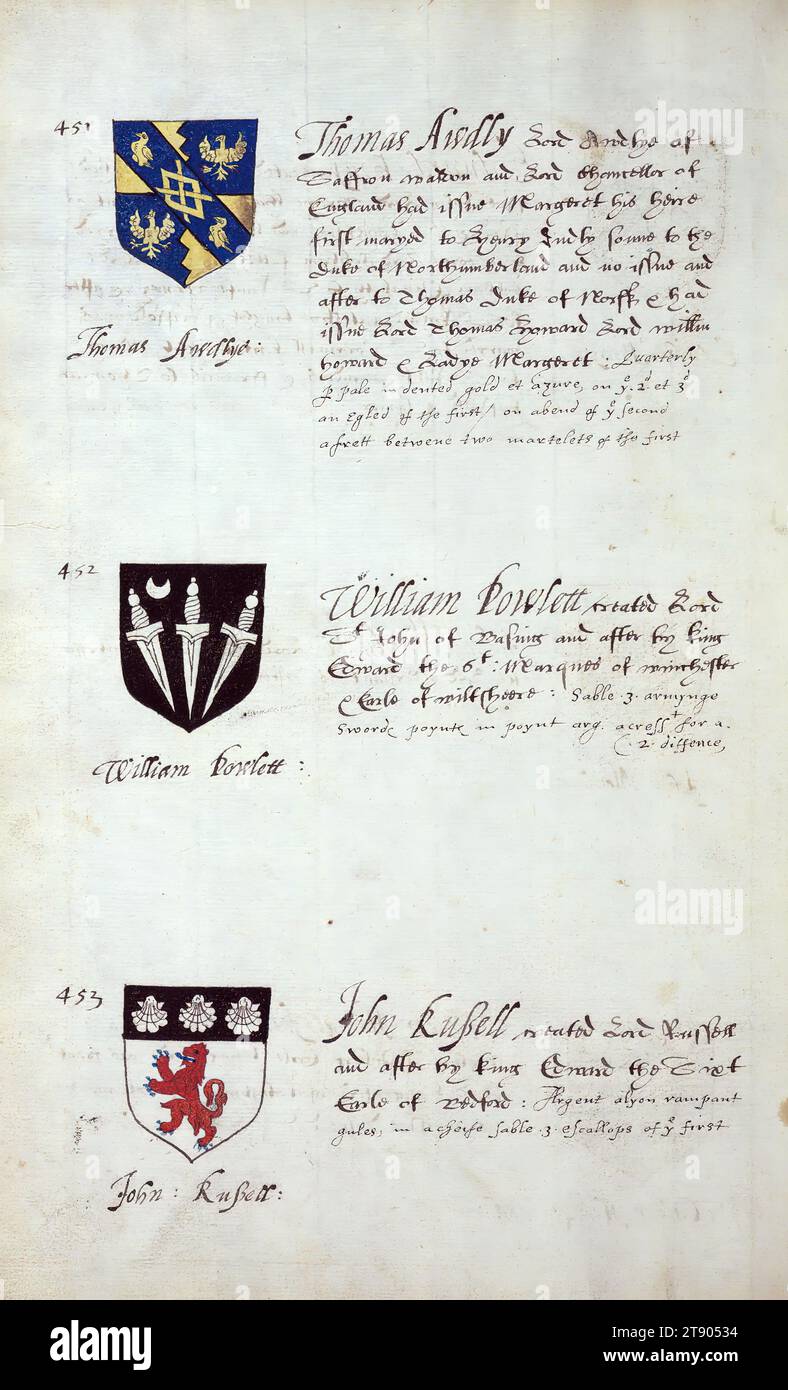 451
Thomas Awdly Lord Awdlye of
Saffron Walden and Lord Chancellor of
England had issue Margeret his heire
first maryed to Henry Dudly sonne to the
Duke of Northumberland and no issue and
after to Thomas Duke of Norff & had
issue Lord Thomas Howard Lord Willm
howard & Ladye Margeret : Quarterly
p pale indented gold et azure, on yͤ. 2ᵈ. et 3ᵈ
an Egled of the first / on abend of yͤ second
afrett betwene two martelets of the first
Thomas Awdlye :
452
William Powlett created Lord
Sᵗ John of Basing and after by king
Edward the 6ᵗ : Marques of winchester
& Earle of wiltsheere : Sable 3. armynge
Swords poynts in poynt arg. acress+ for a
2. diffence
William Powlett :
453
John Rußell created Lord Russell
and after by king Edward the Sixt
Earle of Bedford : Argent alyon rampant
gules, in acheife sable .3. escallops of yͤ first
John : Rußell :
alamy
alamy
alamy
Image ID: 2T90534
www.alamy.com